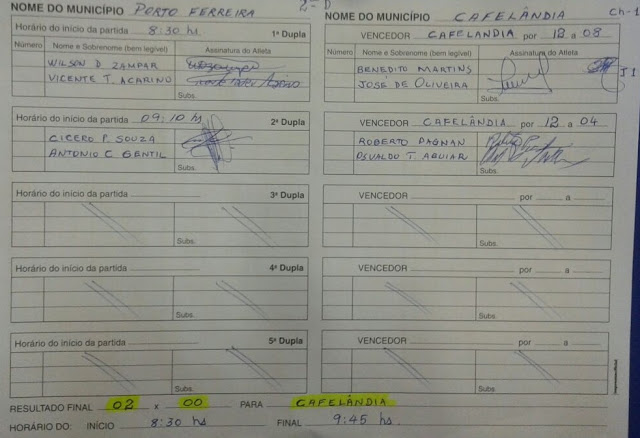 NOME DO MUNICÍPIO PORTO FERREIRA 2ª D
NOME DO MUNICÍPIO CAFELÂNDIA Ch-1
Horário do início da partida 8:30 hs. 1ª Dupla
VENCEDOR CAFELANDIA por 12 a 08
Número Nome e Sobrenome (bem legível) Assinatura do Atleta
Número Nome e Sobrenome (bem legível) Assinatura do Atleta
WILSON D ZAMPAR
BENEDITO MARTINS
VICENTE T. ACARINO
JOSÉ DE OLIVEIRA
Subs.
Subs.
Horário do início da partida 09:10 hs 2ª Dupla
VENCEDOR CAFELÂNDIA por 12 a 04
CICERO P. SOUZA
ROBERTO PAGNAN
ANTONIO C GENTIL
OSVALDO T. AGUIAR
Subs.
Subs.
Horário do início da partida 3ª Dupla
VENCEDOR por a
Subs.
Subs.
Horário do início da partida 4ª Dupla
VENCEDOR por a
Subs.
Subs.
Horário do início da partida 5ª Dupla
VENCEDOR por a
Subs.
Subs.
RESULTADO FINAL 02 x 00 PARA CAFELÂNDIA
HORÁRIO DO: INÍCIO 8:30 hs FINAL 9:45 hs